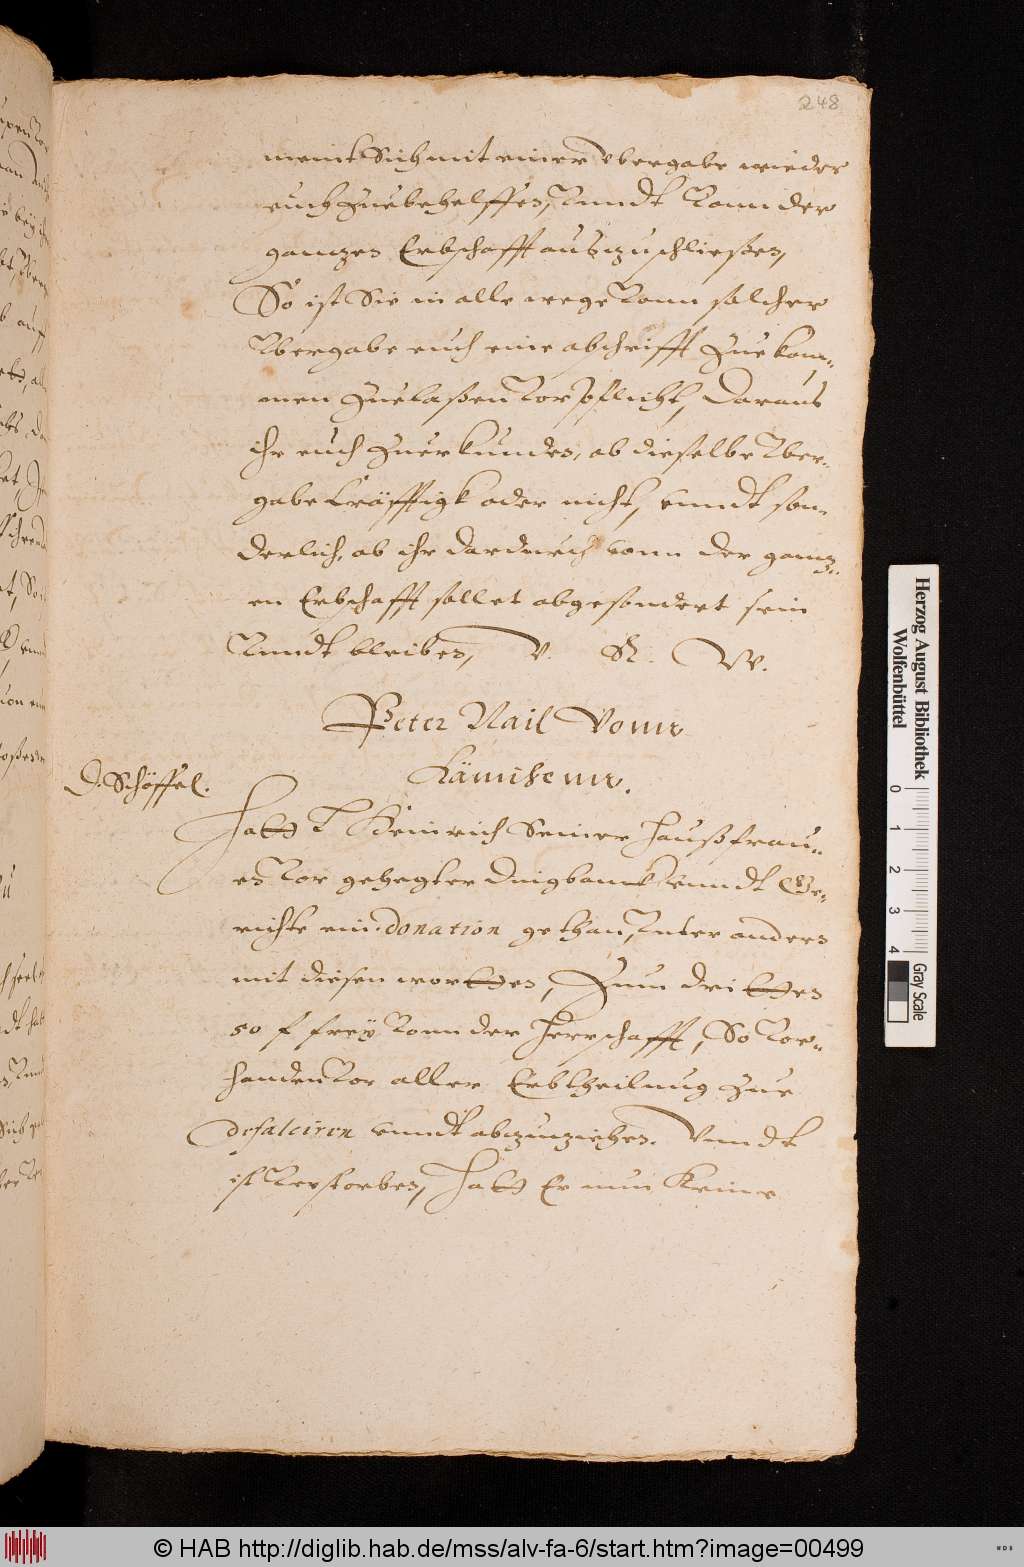 248
meint Sich mit einer vbergabe wieder
euch Zuebehelffen, Vnndt Vonn der
gantzen Erbschafft auszuschließen,
So ist Sie in alle wege Vonn solcher
Vbergabe euch eine abschrifft Zue kom-
men Zuelaßen Vorpflicht, Daraus
ihr euch Zuerkunden, ob dieselbe Vber-
gabe kräfftigk oder nicht, vnndt son-
derlich, ob ihr dardurch vonn der gantz-
en Erbschafft sollet abgesondert sein
Vnndt bleiben, V. R. W.
Peter Nail Vonn
D. Schöffel.
Hatt Heinrich Seiner Haußfrau-
en Vor gehegter Dingbanck vnndt Ge-
richte ein donation gethan, Vnter andern
mit diesen wortten, Zum dritten
50 f frey Vonn der Herrschafft, So Vor-
handen Vor aller Erbtheilung Zue
defalciren vnndt abzuziehen. Vnndt
ist Verstorben, Hatt Er nun Keine
Herzog August Bibliothek
Wolfenbüttel
0 1 2 3 4
Gray Scale
© HAB http://diglib.hab.de/mss/alv-fa-6/start.htm?image=00499